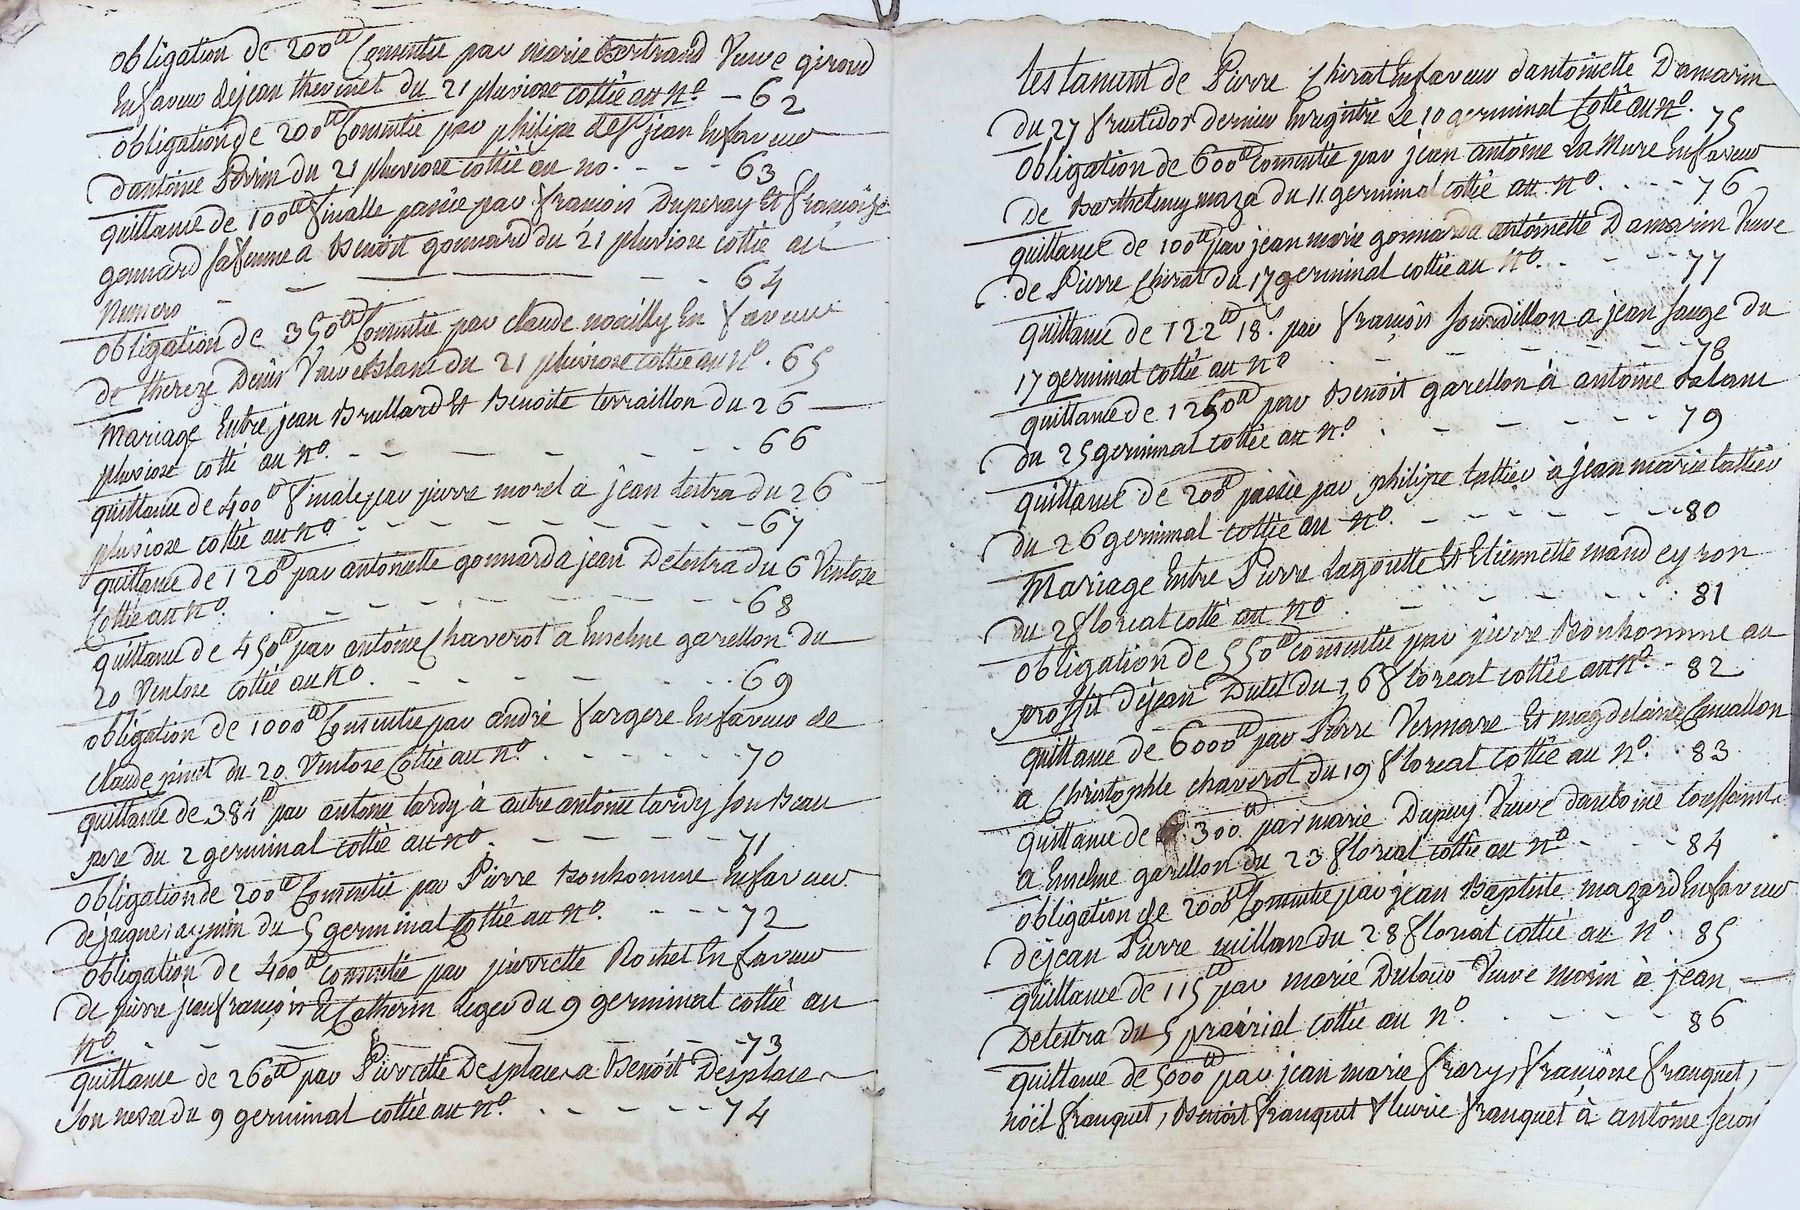 obligation de 200ᵗᵗ Consentie par marie Bertrand Veuve giroud
En faveur de jean thevenet du 21 pluviose cottée au nº - 62
obligation de 200ᵗᵗ Consentie par philipe jean En faveur
dantoine Perrin du 21 pluviose cottée au no. - - - 63
quittance de 100ᵗᵗ finalle passée par françois Duperay Et françoise
gonnard sa femme a Benoit gonnard du 21 pluviose cottée au
Numero - - - - 64
obligation de 350ᵗᵗ Consentie par claude noailly En faveur
de thereze Denis Veuve du 21 pluviose cottée au nº. 65
Mariage Entre jean Brullard Et Benoite terraillon du 26
pluviose cotté au nº. - - - - - 66
quittance de 400ᵗᵗ finale par pierre morel a jean testra du 26
pluviose cottée au nº - - - - - - - 67
quittance de 120ᵗᵗ par antoinette gonnard a jean Detestra du 6 Ventose
Cottée au nº. - - - - - - - 68
quittance de 450ᵗᵗ par antoine Chaverot a Enselme garellon du
20 Ventose cottée au nº. - - - - - - 69
obligation de 1000ᵗᵗ Consentie par andré fargere En faveur de
claude pinet du 20 Ventose Cottée au nº. - - - - - 70
quittance de 384ᵗᵗ par antoine tardy à autre antoine tardy son Beau
pere du 2 germinal cottée au nº. - - - - - 71
obligation de 200ᵗᵗ Consentie par Pierre Bonhomme En faveur
de jacques aymin du 5 germinal Cottée au nº. - - - 72
obligation de 400ᵗᵗ consentie par pierrette Rochet En faveur
de pierre jean françois Et Catherin Leger du 9 germinal cottée au
nº. - - - - - - 73
quittance de 260ᵗᵗ par Pierrette Desplaces a Benoit Desplaces
son neveu du 9 germinal cottée au nº. - - - - - 74
testament de Pierre Chirat En faveur dantoinette Damarin
du 27 fructidor dernier Enregistré Le 10 germinal Coté au nº. 75
obligation de 600ᵗᵗ Consentie par jean antoine La Mure En faveur
de Barthelemy maza du 11 germinal cottée au nº. - - - 76
quittance de 100ᵗᵗ par jean marie gonnard a antoinette Damarin Veuve
de Pierre Chirat du 17 germinal cottée au nº. - - - - 77
quittance de 122ᵗᵗ 18ˢ par françois sourdillon a jean sauge du
17 germinal cottée au nº - - - - - - - 78
quittance de 1250ᵗᵗ par Benoit garellon à antoine
du 25 germinal cottée au nº. - - - - - - 79
quittance de 200ᵗᵗ passée par philipe tattier à jean marie tattier
du 26 germinal cottée au nº. - - - - - - 80
Mariage Entre Pierre Lagoutte Et Etiennette mandeyron
du 2 floreal cotté au nº. - - - - - - 81
obligation de 550ᵗᵗ consentie par pierre Bonhomme au
proffit de jean Dutel du 16 floreal cottée au nº. - 82
quittance de 6000ᵗᵗ par Pierre Vermare Et magdelaine Cancallon
a Christophle chaverot du 19 floreal cottée au nº. 83
quittance de 300ᵗᵗ par marie Dupuy Veuve dantoine toussaint
a Enselme garellon du 23 floreal cottée au nº - - - 84
obligation de 2000ᵗᵗ Consentie par jean Baptiste mazard En faveur
de jean Pierre millan du 28 floreal cottée au nº. 85
quittance de 115ᵗᵗ par marie Dulaire Veuve morin à jean
Detestra du 5 prairial cottée au nº. - - - - 86
quittance de 5000ᵗᵗ par jean marie frary, françoise franquet,
noël franquet, Benoit franquet fleurie franquet à antoine